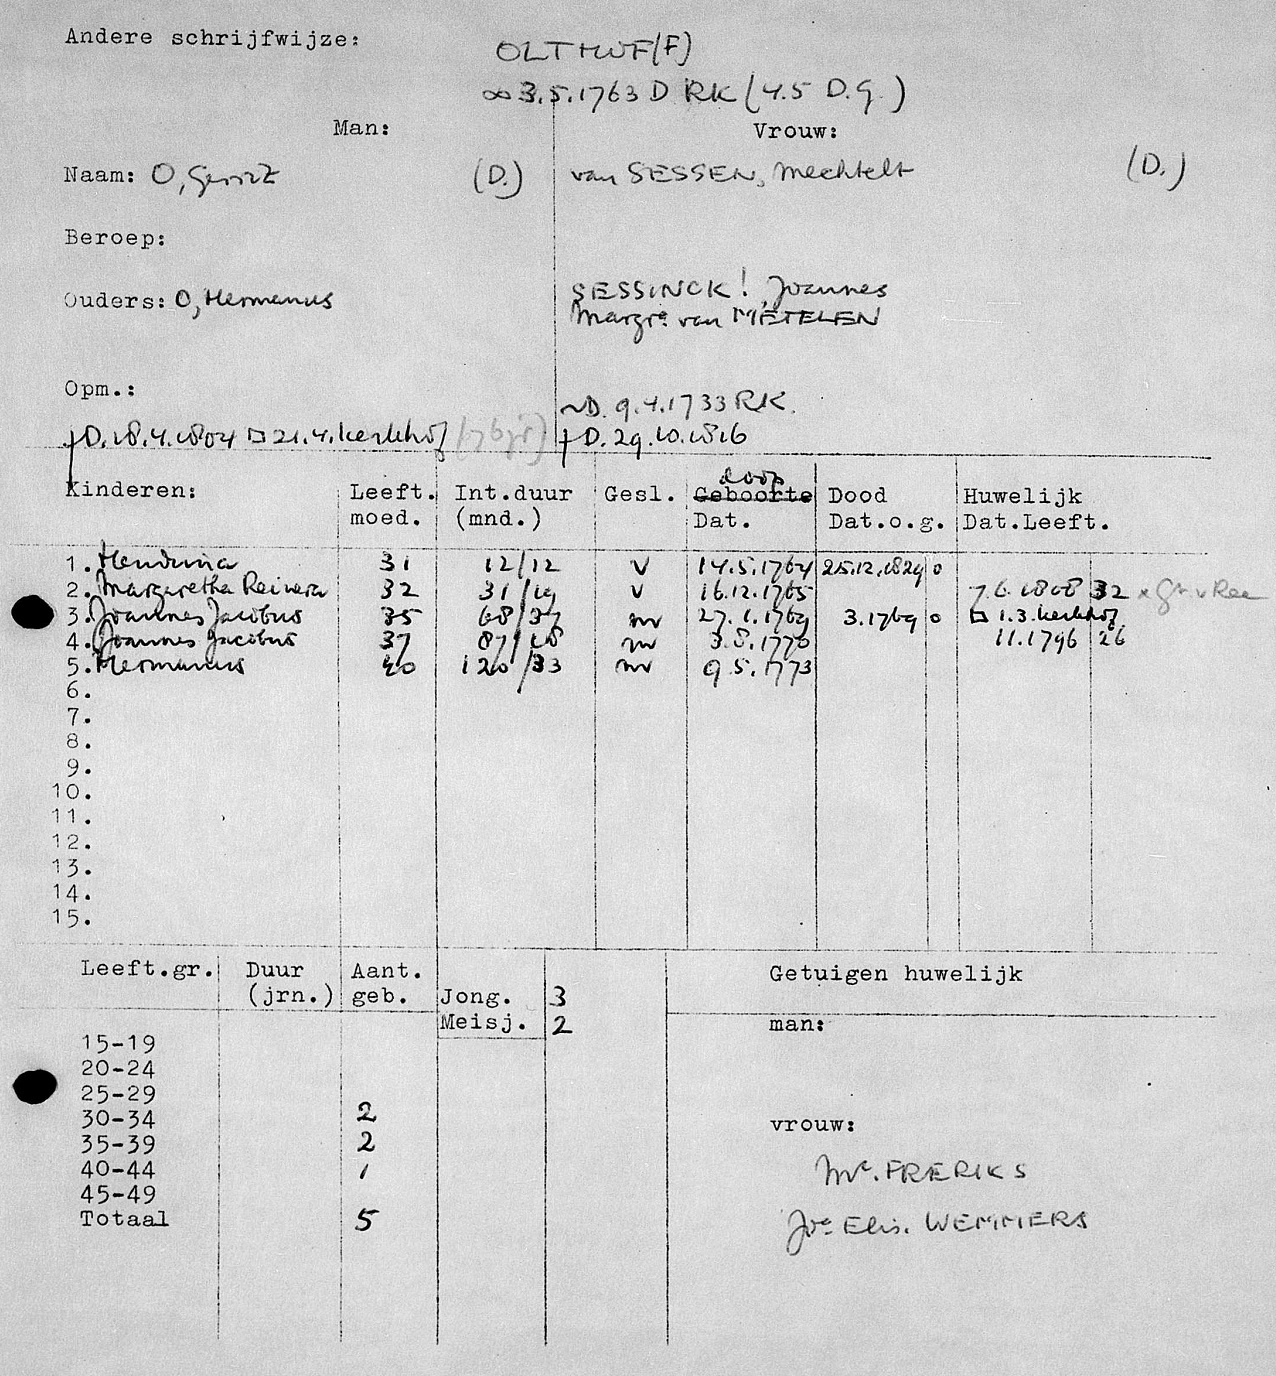 Andere schrijfwijze: OLTHUF(F)
∞ 3.5.1763 D RK (4.5 D.G.)
Man: Vrouw:
Naam: O, Gerrit (D.) van SESSEN, Mechtelt (D.)
Beroep:
Ouders: O, Hermanus SESSINCK!, Joannes
Margra. van METELEN
Opm.:
~D. 9.4.1733 RK.
†D. 18.4.1804 □ 21.4. kerkhof (76jr) †D. 29.10.1816
Kinderen: Leeft. moed. Int.duur (mnd.) Gesl. doop Geboorte Dat. Dood Dat.o.g. Huwelijk Dat.Leeft.
1. Hendrina 31 12/12 v 14.5.1764 25.12.1829 o
2. Margaretha Reinera 32 31/19 v 16.12.1765 7.6.1808 32 x
3. Joannes Jacobus 35 68/37 m 27.1.1769 3.1769 o □ 1.3. kerkhof
4. Joannes Jacobus 37 87/18 m 3.8.1770 11.1796 26
5. Hermanus 40 120/33 m 9.5.1773
6.
7.
8.
9.
10.
11.
12.
13.
14.
15.
Leeft.gr. Duur (jrn.) Aant. geb. Jong. 3 Getuigen huwelijk
Meisj. 2 man:
15-19
20-24
25-29
30-34 2
35-39 2 vrouw:
40-44 1 Mc. FRERIKS
45-49
Totaal 5 Joa Elis. WEMMERS